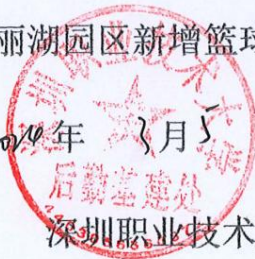 丽湖园区新增篮球
2024年 3月5
后勤基建处
深圳职业技术